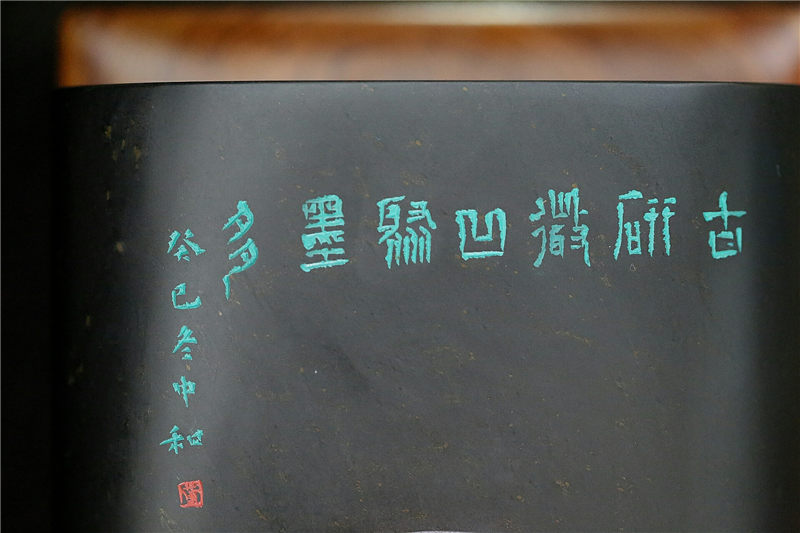 古研微凹聚墨多
癸巳冬中和